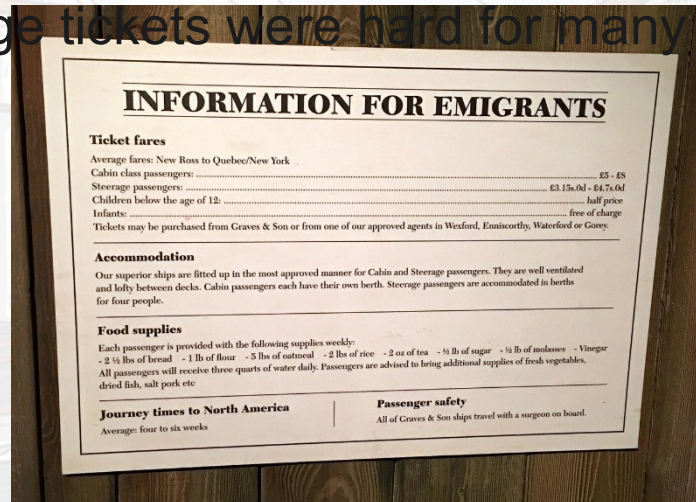 ge tickets were hard for many
INFORMATION FOR EMIGRANTS
Ticket fares
Average fares: New Ross to Quebec/New York
Cabin class passengers: £5 - £8
Steerage passengers: £3.15s.0d - £4.7s.0d
Children below the age of 12: half price
Infants: free of charge
Tickets may be purchased from Graves & Son or from one of our approved agents in Wexford, Enniscorthy, Waterford or Gorey.
Accommodation
Our superior ships are fitted up in the most approved manner for Cabin and Steerage passengers. They are well ventilated
and lofty between decks. Cabin passengers each have their own berth. Steerage passengers are accommodated in berths
for four people.
Food supplies
Each passenger is provided with the following supplies weekly:
- 2 ½ lbs of bread - 1 lb of flour - 5 lbs of oatmeal - 2 lbs of rice - 2 oz of tea - ½ lb of sugar - ½ lb of molasses - Vinegar
All passengers will receive three quarts of water daily. Passengers are advised to bring additional supplies of fresh vegetables,
dried fish, salt pork etc
Journey times to North America
Average: four to six weeks
Passenger safety
All of Graves & Son ships travel with a surgeon on board.